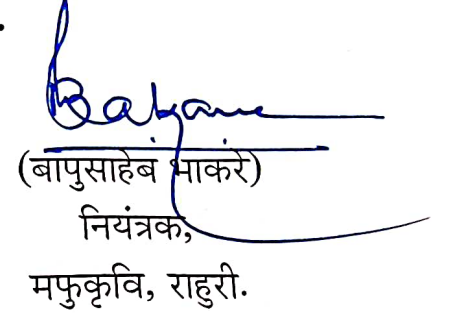 (बापुसाहेब भाकरे)
नियंत्रक,
मफुकृवि, राहुरी.